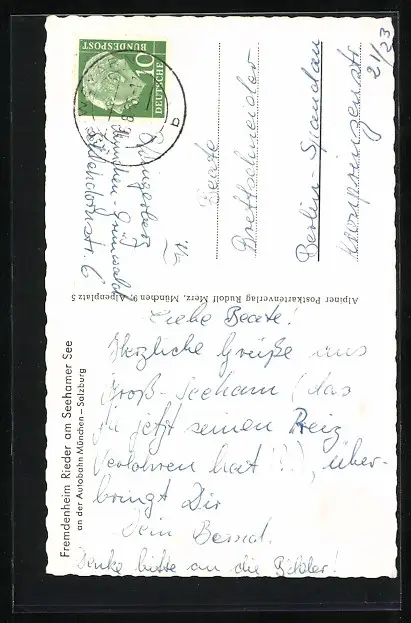 Fremdenheim Rieder am Seehamer See
an der Autobahn München – Salzburg
Liebe Beate!
Herzliche Grüße aus
Groß-Seeham (das
ja jetzt seinen Reiz
verloren hat!?), über-
bringt Dir
Dein Bernd.
Denke bitte an die Bilder!
Alpiner Postkartenverlag Rudolf Merz, München 9, Alpenplatz 5
DEUTSCHE
BUNDESPOST
10
b
München-Grünwald
Beate
Brettschneider
Berlin-Spandau
Kronprinzenstr
21/23